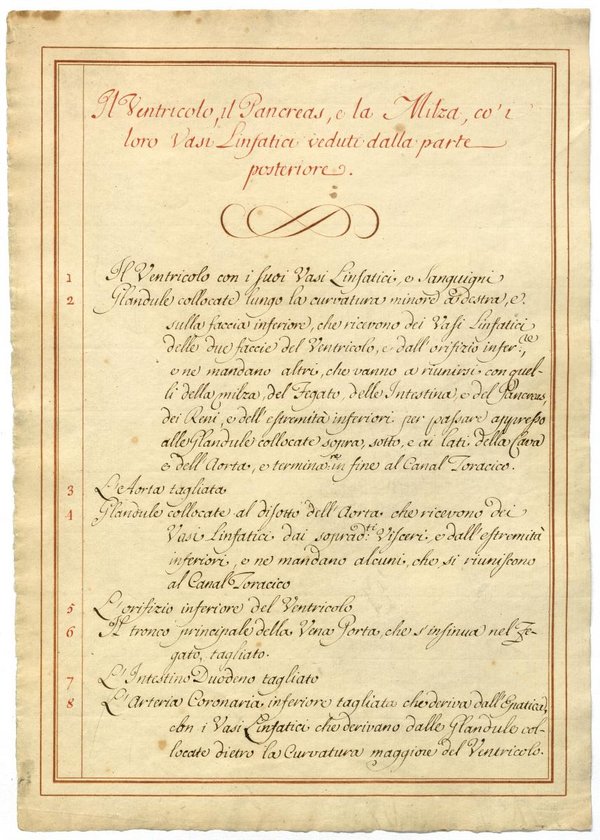 Il Ventricolo, il Pancreas, e la Milza, co' i
loro Vasi Linfatici veduti dalla parte
posteriore.
1 Il Ventricolo con i suoi Vasi Linfatici, e Sanguigni
2 Glandule collocate lungo la curvatura minore a destra, e
sulla faccia inferiore, che ricevono dei Vasi Linfatici
delle due faccie del Ventricolo, e dall'orifizio infer:re
e ne mandano altri, che vanno a riunirsi con quel-
li della milza, del Fegato, delle Intestina, e del Pancreas,
dei Reni, e dell'estremità inferiori per passare appresso
alle Glandule collocate sopra, sotto, e ai lati della Cava
e dell'Aorta, e termina in fine al Canal Toracico.
3 L'Aorta tagliata
4 Glandule collocate al disotto dell'Aorta che ricevono dei
Vasi Linfatici dai soprad:ti Visceri, e dall'estremità
inferiori, e ne mandano alcuni, che si riuniscono
al Canal Toracico
5 L'orifizio inferiore del Ventricolo
6 Il tronco principale della Vena Porta, che s'insinua nel Fe-
gato, tagliato.
7 L'Intestino Duodeno tagliato
8 L'Arteria Coronaria inferiore tagliata che deriva dall'Epatica,
con i Vasi Linfatici che derivano dalle Glandule col-
locate dietro la Curvatura maggiore del Ventricolo.